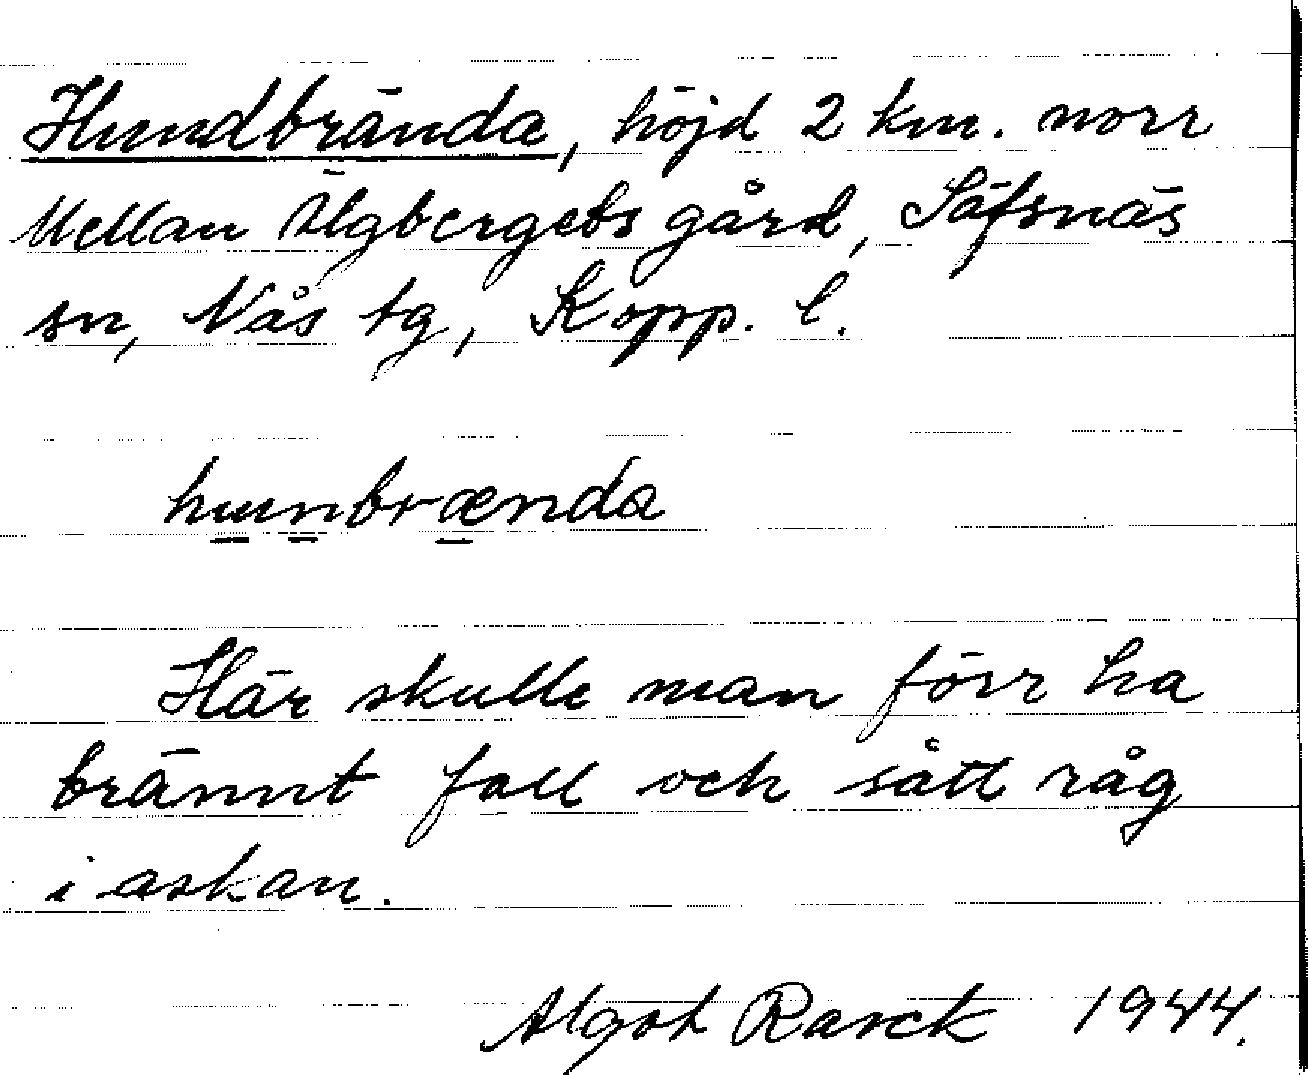 Hundbrända, höjd 2 km. norr
Mellan Älgbergets gård, Säfsnäs
sn, Nås tg, Kopp. l.
hunbrænda
Här skulle man förr ha
brännt fall och sått råg
i askan.
Algot Rarck 1944.